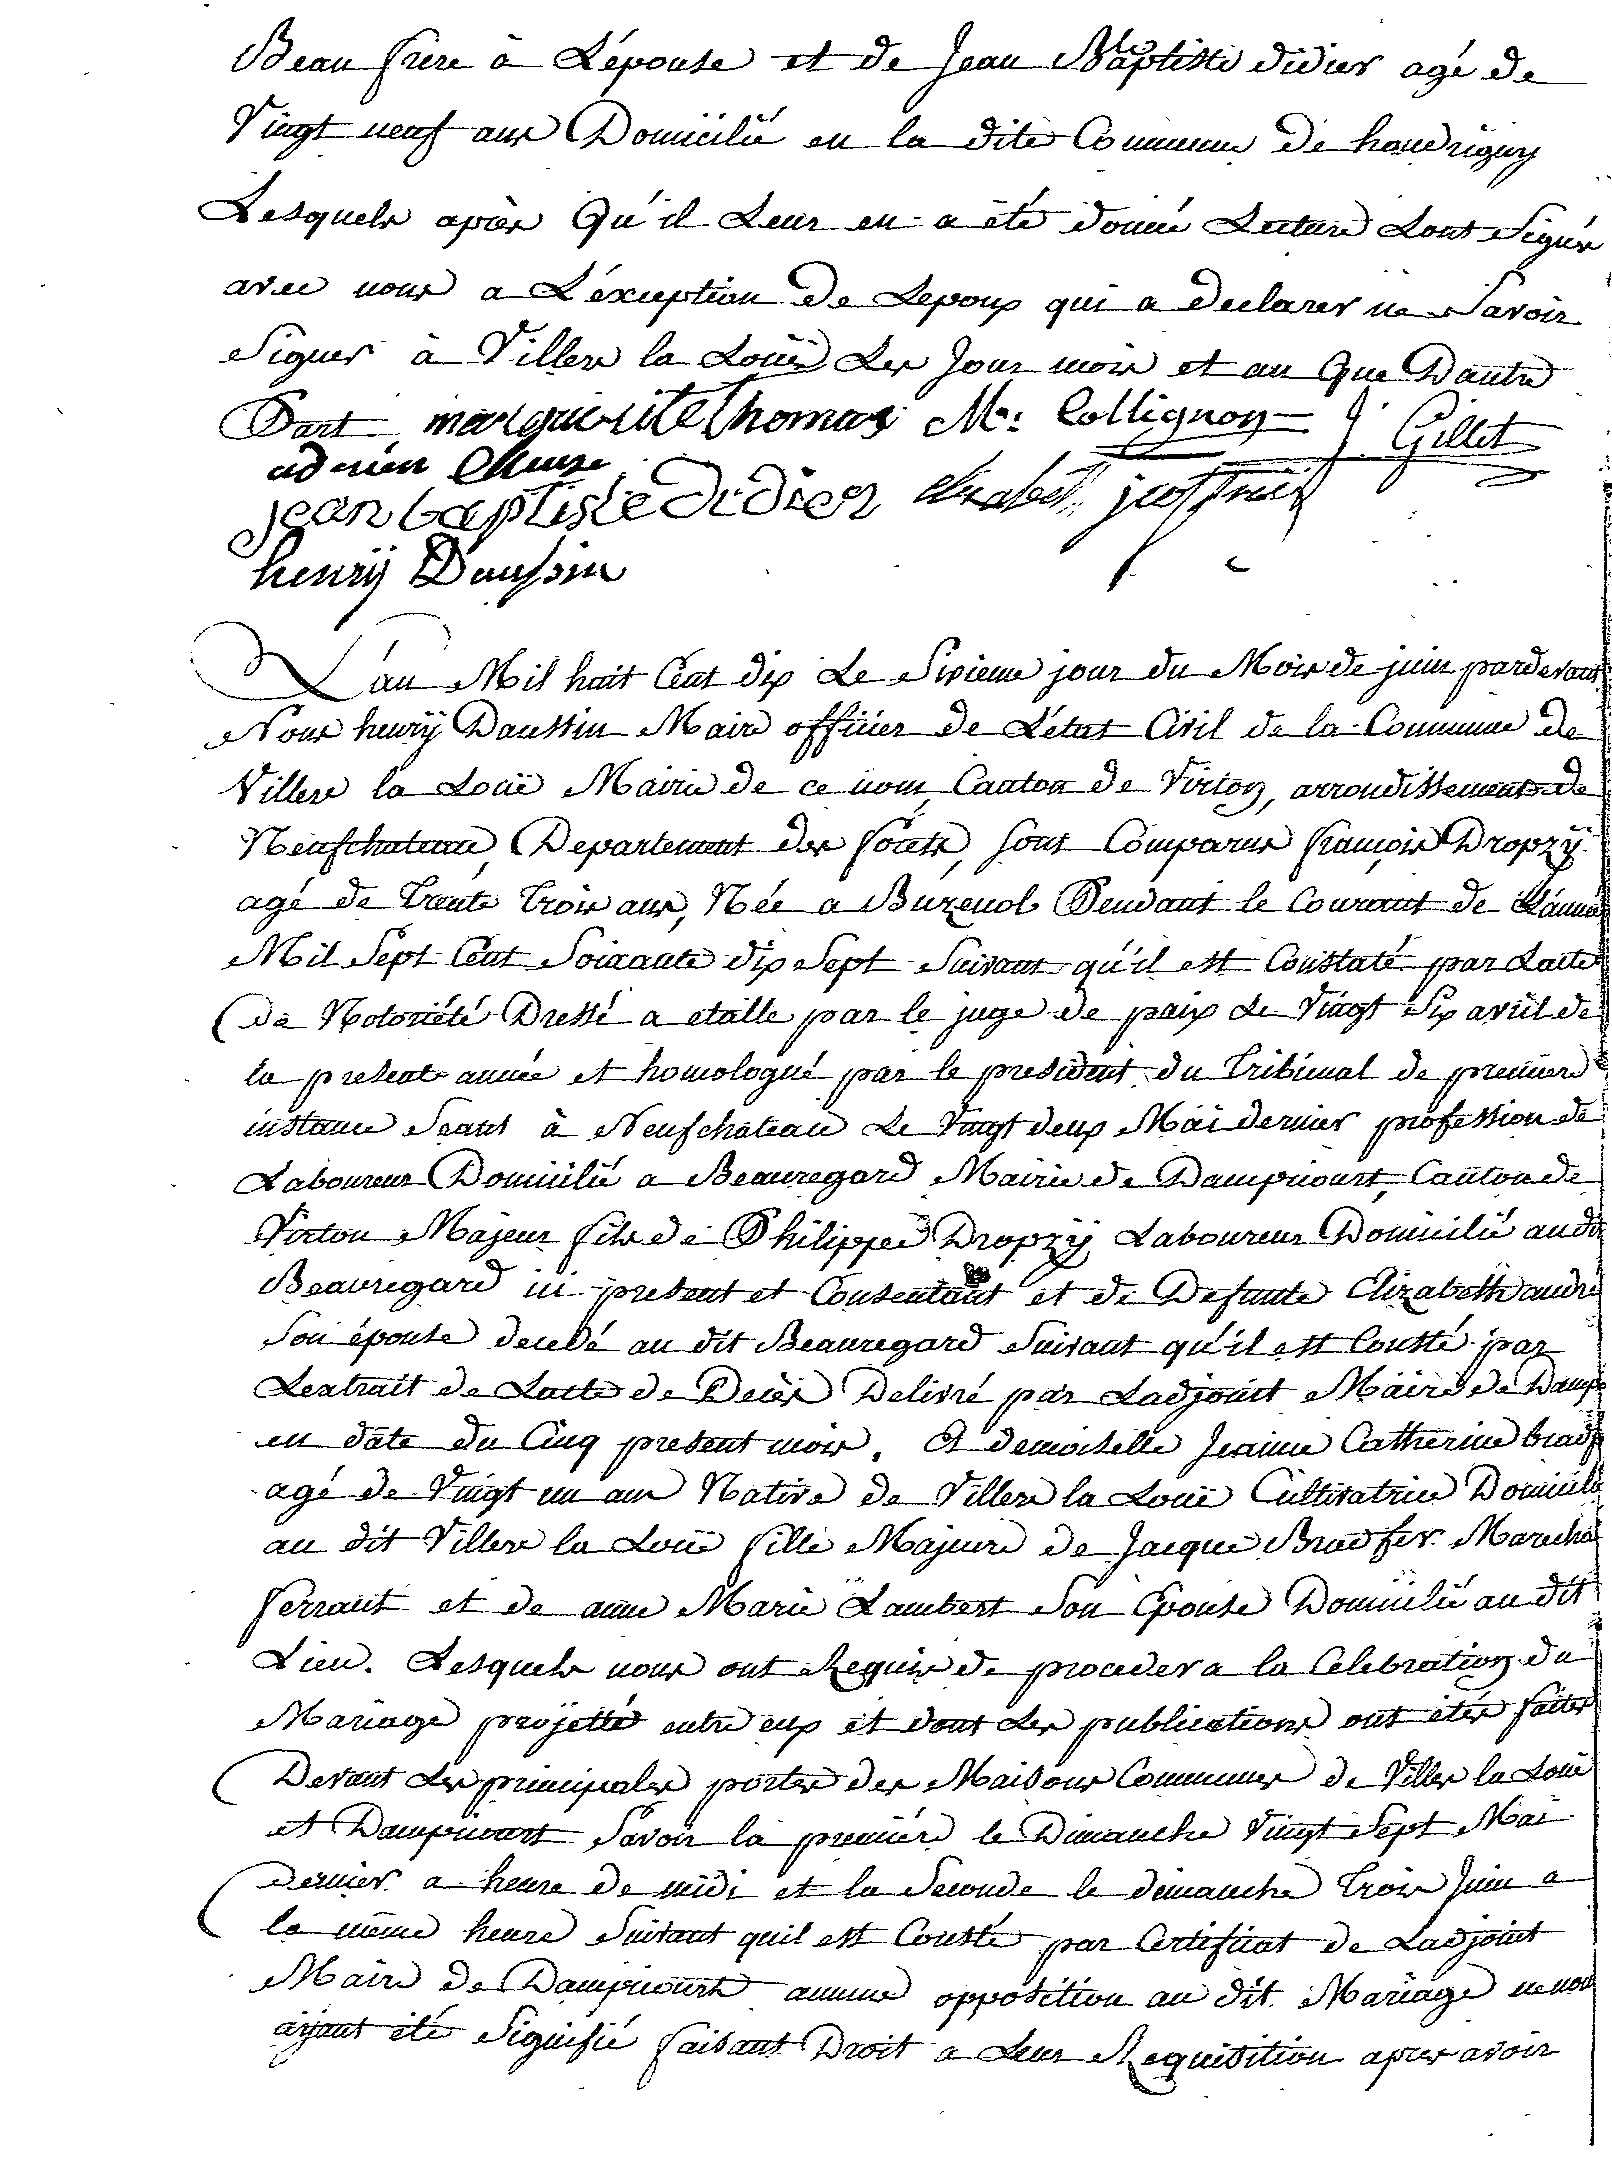 Beau frere à L'épouse et de Jean Baptiste didier agé de
Vingt neuf ans Domicilié en la dite Commune de houdrigny
Lesquels après Qu'il Leur en a été donné Lecture Sont Signés
avec nous a L'éxception de Lepoux qui a declarer ne Savoir
Signer à Villers la Loüe Les Jour mois et an Que Dautre
Part marguerite thomas M. Collignon J. Gillet
adrien
jean baptiste didier
henrÿ Daussin
L'an Mil huit Cent dix Le Sixieme jour du Mois de juin pardevant
Nous henrÿ Daussin Maire officier de L'état Civil de la Commune de
Villers la Loüe Mairie de ce nom, Canton de Virton, arrondissement de
Neufchateau, Departement des forets, sont Comparus françois Dropzÿ
agé de trente trois ans, Née a Buzenol Pendant le Courant de L'année
Mil Sept Cent Soixante dix Sept Suivant qu'il est Constaté par Lacte
de Notoriété Dressé a etalle par le juge de paix Le Vingt Six avril de
la present année et homologué par le president du tribunal de premiere
instance Seant à Neufchateau Le Vingt deux Mai dernier profession de
Laboureur Domicilié a Beauregard Mairie de Dampicourt, Canton de
Virton Majeur fils de Philippe Dropzÿ Laboureur Domicilié au dit
Beauregard ici present et Consentant et de Defunte Elizabeth andré
Son épouse decedé au dit Beauregard Suivant qu'il est Consté par
Lextrait de Lacte de Decès Delivré par Ladjoint Maire de Damp
en date du Cinq present mois. Et demoiselle Jeanne Catherine bradf
agé de Vingt un ans Native de Villers la Loüe Cultivatrice Domicilé
au dit Villers la Loüe fille Majeure de Jacque Bradfer Marechal
ferrant et de anne Marie Lambert Son Epouse Domicilié au dit
Lieu. Lesquels nous ont Requis de proceder a la Celebration du
Mariage projetté entre eux et dont Les publications ont étés faites
Devant Les principales portes des Maisons Communes de Villers la Loüe
et Dampicourt Savoir la premiére le Dimanche Vingt Sept Mai
dernier a heure de midi et la Seconde le dimanche trois Juin a
la même heure Suivant quil est Consté par Certificat de Ladjoint
Maire de Dampicourt aucune opposition au dit Mariage ne nous
aÿant été Signifié faisant Droit a Leur Requisition apres avoir